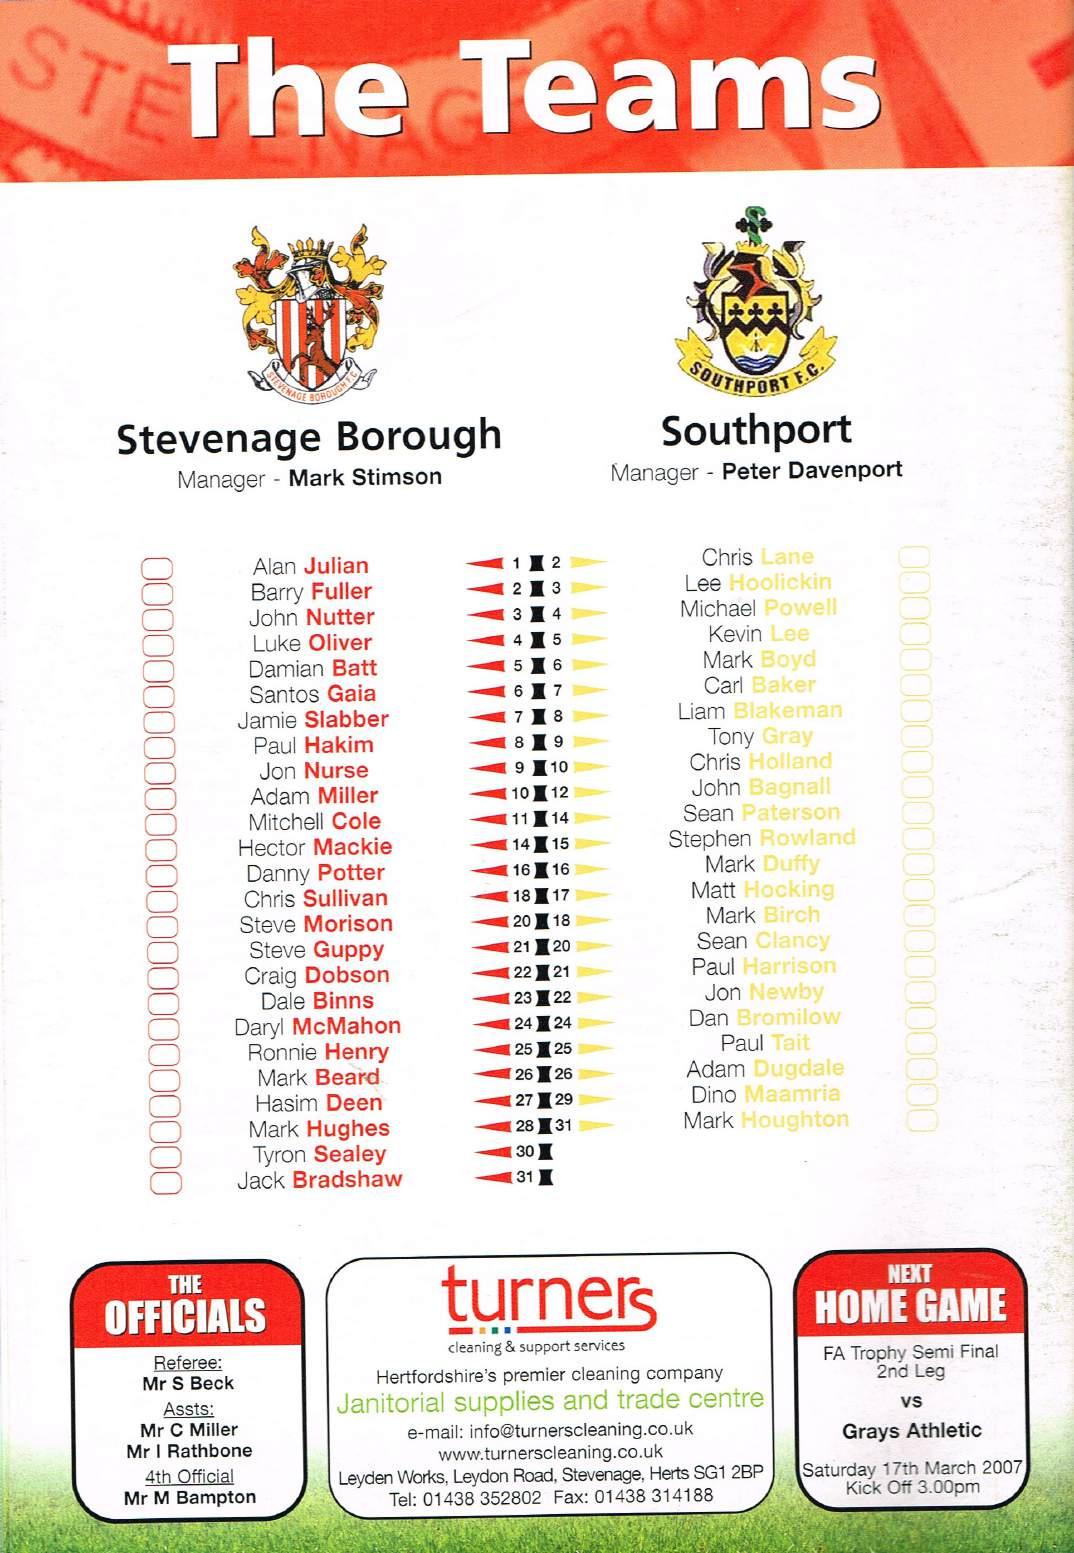 The Teams
STEVENAGE BOROUGH F.C
SOUTHPORT F.C.
Stevenage Borough
Manager - Mark Stimson
Southport
Manager - Peter Davenport
Alan Julian 1 2 Chris Lane
Barry Fuller 2 3 Lee Hoolickin
John Nutter 3 4 Michael Powell
Luke Oliver 4 5 Kevin Lee
Damian Batt 5 6 Mark Boyd
Santos Gaia 6 7 Carl Baker
Jamie Slabber 7 8 Liam Blakeman
Paul Hakim 8 9 Tony Gray
Jon Nurse 9 10 Chris Holland
Adam Miller 10 12 John Bagnall
Mitchell Cole 11 14 Sean Paterson
Hector Mackie 14 15 Stephen Rowland
Danny Potter 16 16 Mark Duffy
Chris Sullivan 18 17 Matt Hocking
Steve Morison 20 18 Mark Birch
Steve Guppy 21 20 Sean Clancy
Craig Dobson 22 21 Paul Harrison
Dale Binns 23 22 Jon Newby
Daryl McMahon 24 24 Dan Bromilow
Ronnie Henry 25 25 Paul Tait
Mark Beard 26 26 Adam Dugdale
Hasim Deen 27 29 Dino Maamria
Mark Hughes 28 31 Mark Houghton
Tyron Sealey 30
Jack Bradshaw 31
THE
OFFICIALS
Referee:
Mr S Beck
Assts:
Mr C Miller
Mr I Rathbone
4th Official
Mr M Bampton
turners
cleaning & support services
Hertfordshire's premier cleaning company
Janitorial supplies and trade centre
e-mail: info@turnerscleaning.co.uk
www.turnerscleaning.co.uk
Leyden Works, Leydon Road, Stevenage, Herts SG1 2BP
Tel: 01438 352802 Fax: 01438 314188
NEXT
HOME GAME
FA Trophy Semi Final
2nd Leg
vs
Grays Athletic
Saturday 17th March 2007
Kick Off 3.00pm